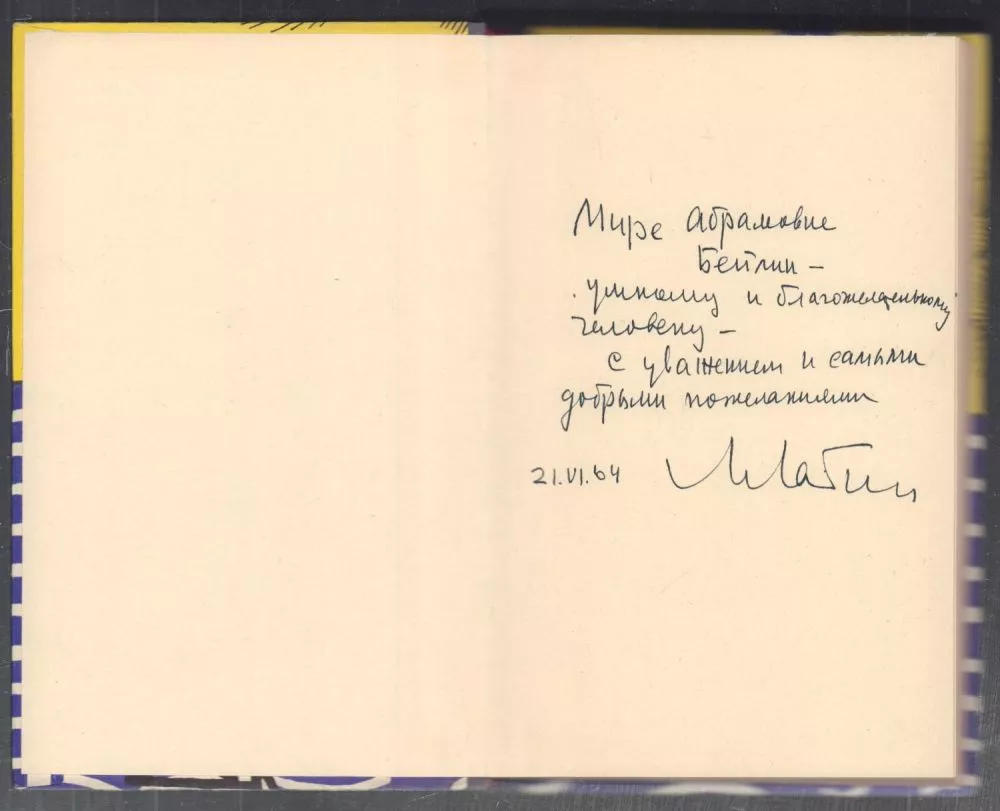 Мире Абрамовне
Бейлин –
умному и благожелательному
человеку –
с уважением и самыми
добрыми пожеланиями
21.VI.64